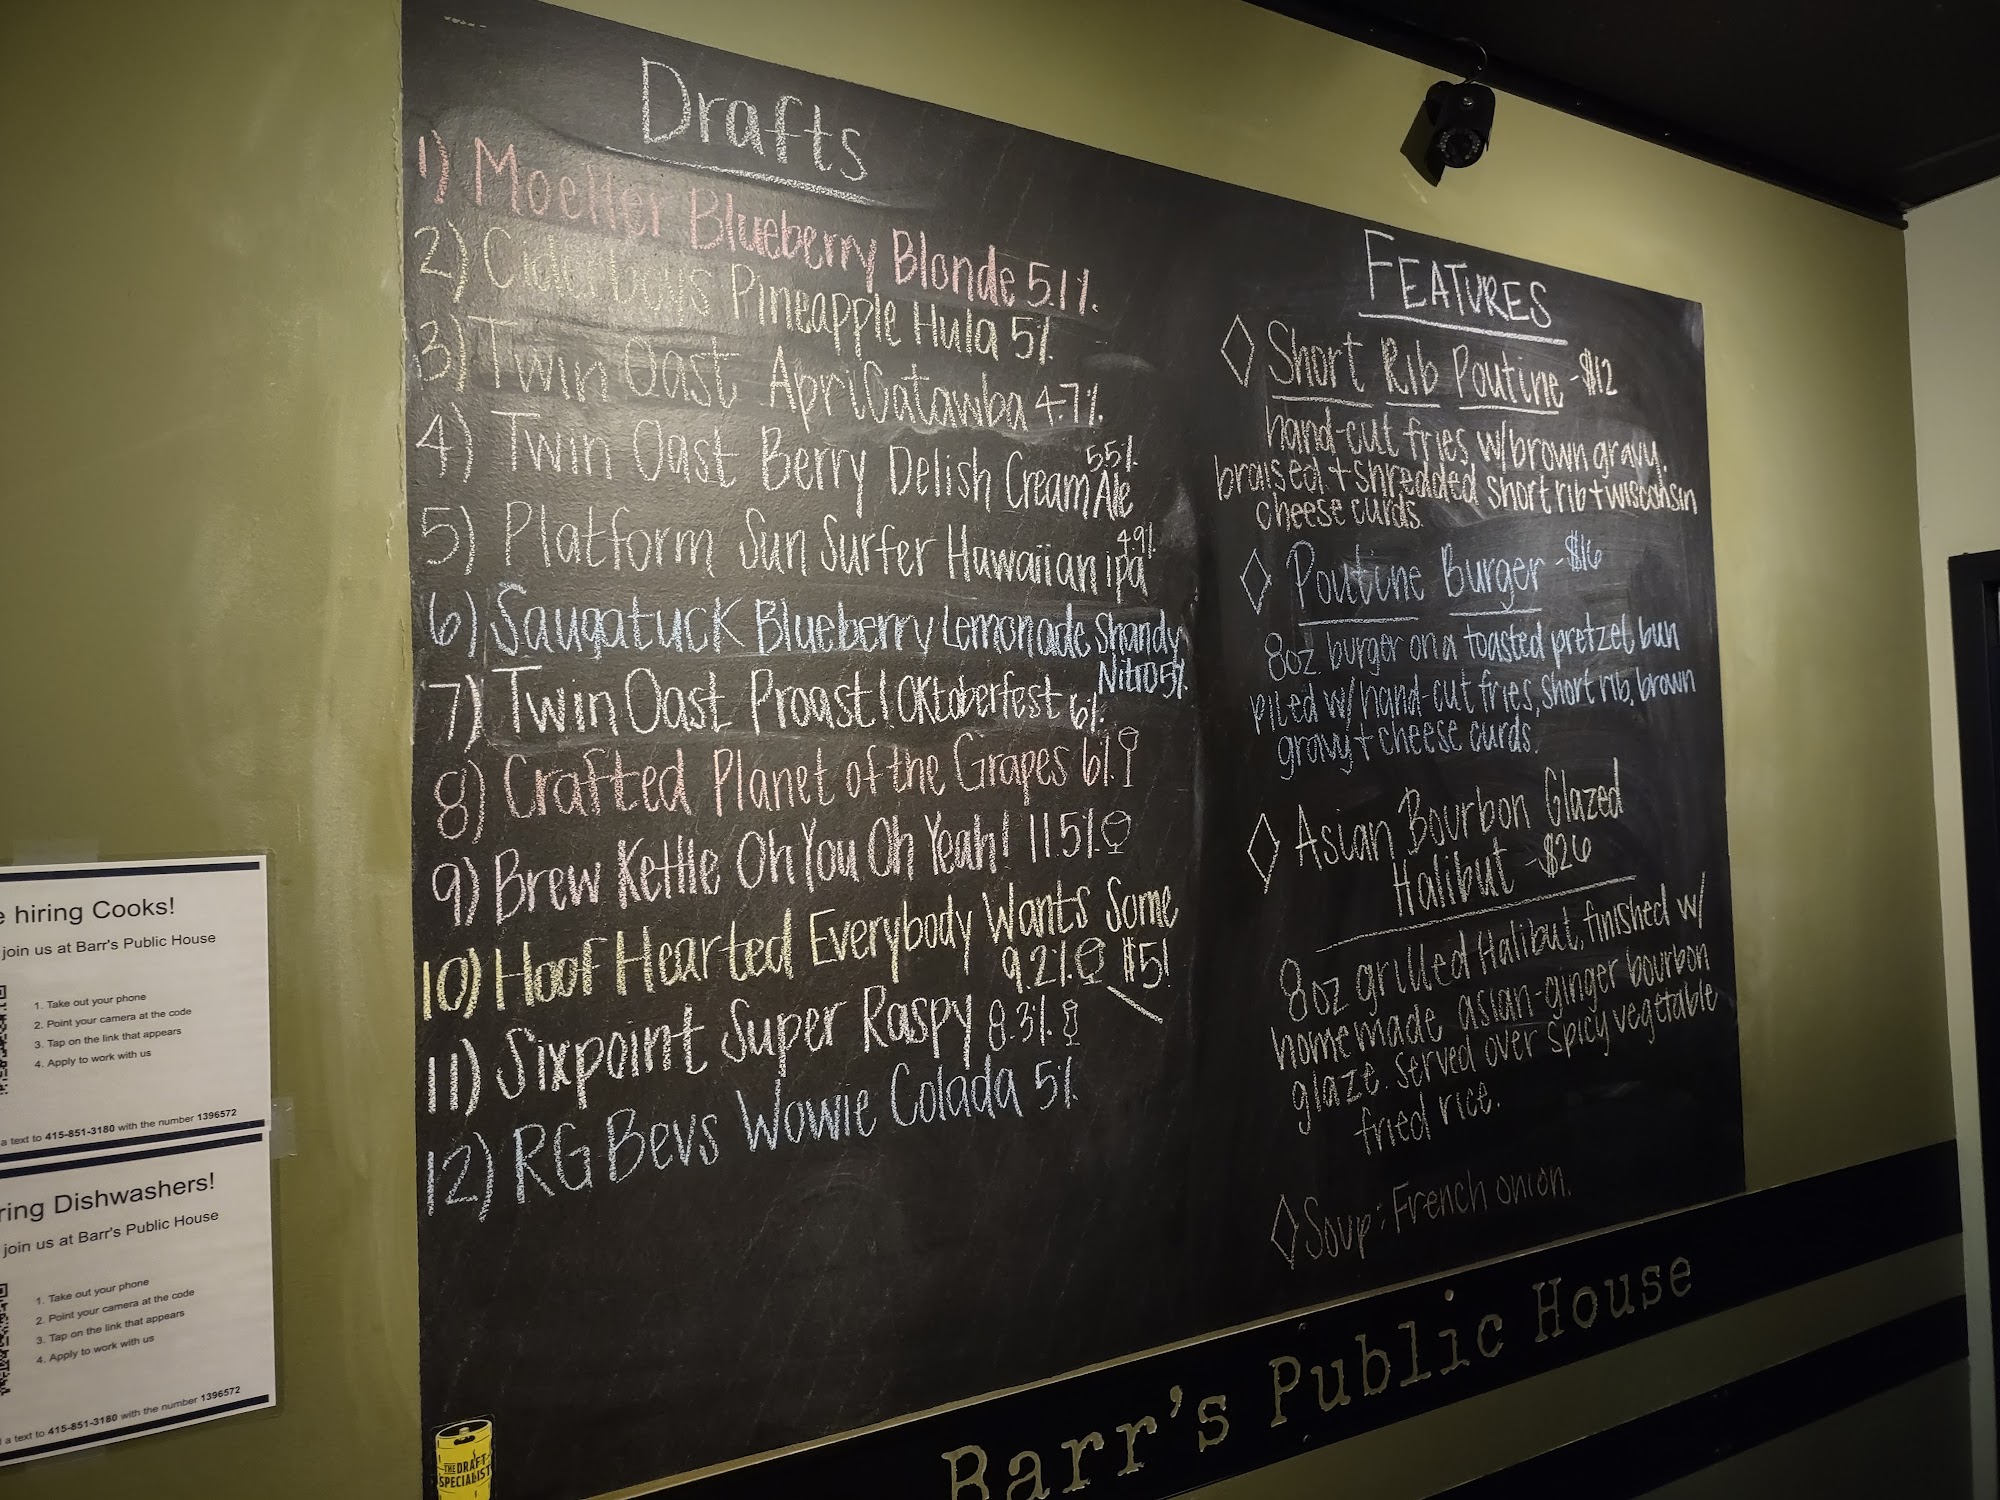 Drafts
1) Moeller Blueberry Blonde 5.1%
2) Ciderboys Pineapple Hula 5%
3) Twin Oast ApriCatawba 4.7%
4) Twin Oast Berry Delish Cream Ale 5.5%
5) Platform Sun Surfer Hawaiian ipa 4.9%
6) Saugatuck Blueberry Lemonade Shandy
Nitro 5%
7) Twin Oast Proast! Oktoberfest 6%
8) Crafted Planet of the Grapes 6%
9) Brew Kettle Oh You Oh Yeah! 11.5%
10) Hoof Hearted Everybody Wants Some
9.2% $5!
11) Sixpoint Super Raspy 8.3%
12) RG Bevs Wowie Colada 5%
FEATURES
Short Rib Poutine - $12
hand-cut fries w/brown gravy.
braised + shredded short rib + wisconsin
cheese curds.
Poutine Burger - $16
8oz. burger on a toasted pretzel bun
piled w/ hand-cut fries, short rib, brown
gravy + cheese curds.
Asian Bourbon Glazed
Halibut - $26
8oz grilled Halibut, finished w/
homemade asian-ginger bourbon
glaze. Served over spicy vegetable
fried rice.
Soup: French onion.
Barr's Public House
e hiring Cooks!
join us at Barr's Public House
1. Take out your phone
2. Point your camera at the code
3. Tap on the link that appears
4. Apply to work with us
a text to 415-851-3180 with the number 1396572
ring Dishwashers!
join us at Barr's Public House
1. Take out your phone
2. Point your camera at the code
3. Tap on the link that appears
4. Apply to work with us
a text to 415-851-3180 with the number 1396572
THE DRAFT
SPECIALIST